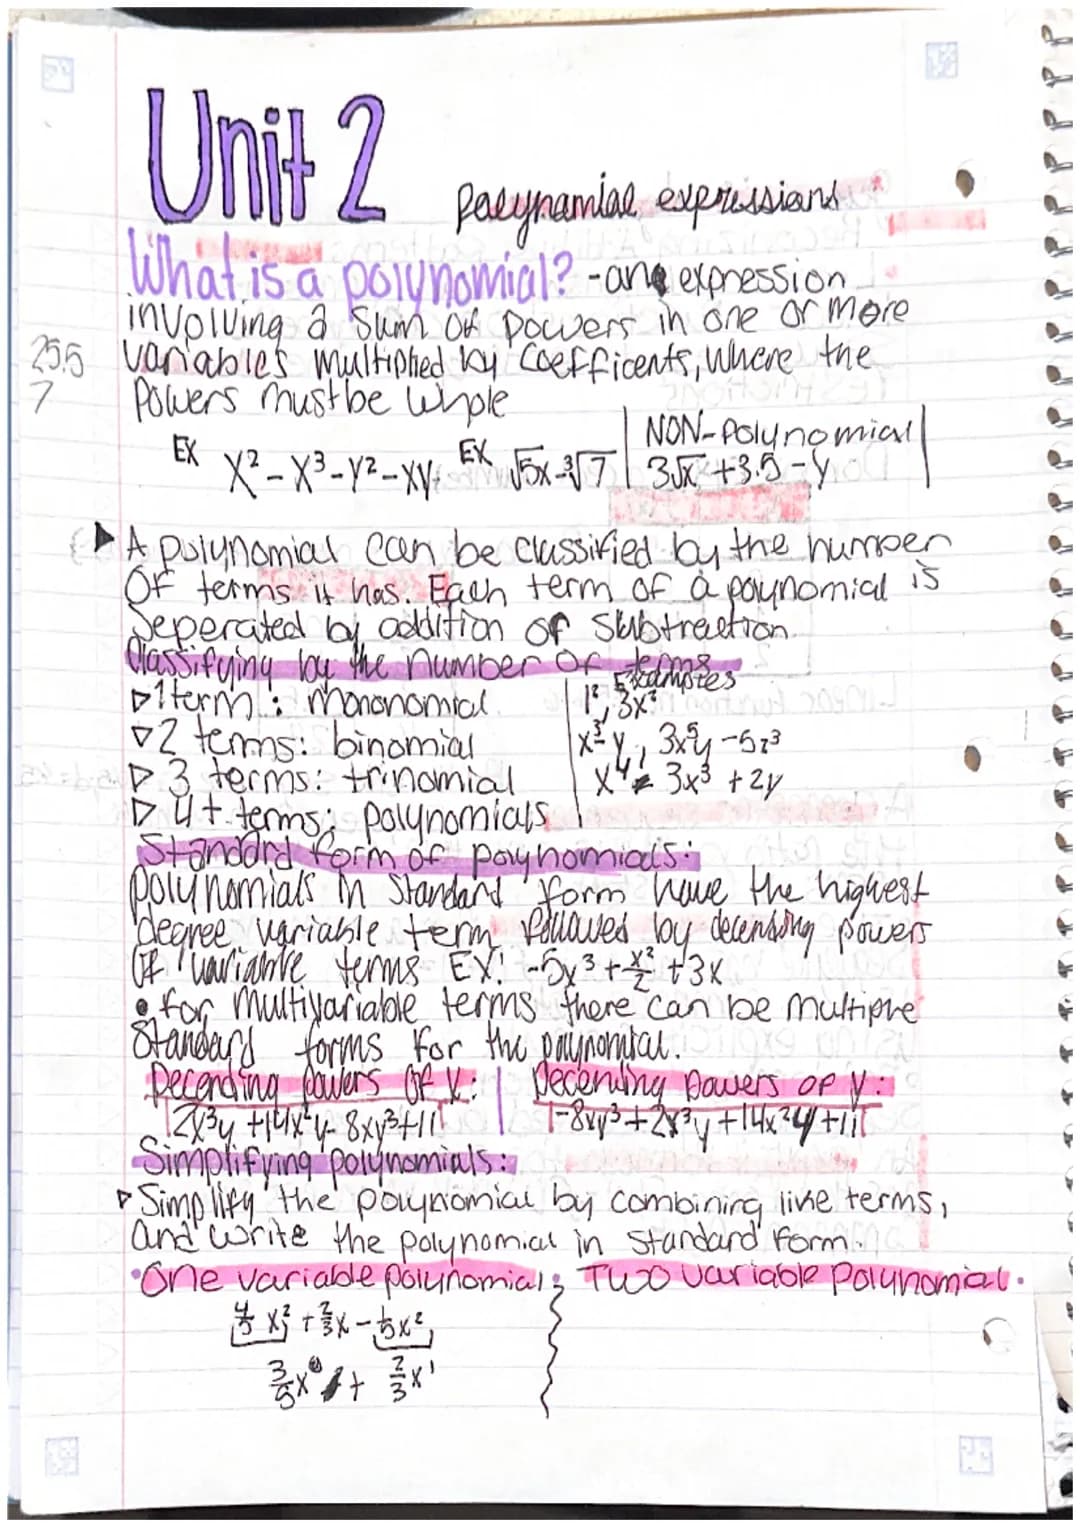 Unit 2
polynomial expressions
What is a polynomial? - an expression
involving a sum of powers in one or more
25.5 variables multiplied by coefficents, where the
7 Powers must be whole
EX x² - x³ - y² - xy EX √5x - ³√7 NON-Polynomial
3√x + 3.5 - y
A polynomial can be classified by the number
of terms it has. Each term of a polynomial is
Seperated by addition of subtraction.
Classifying by the number of terms
Examples
▷ 1 term: monomial 1², 3x²
▷ 2 terms: binomial x³ - y, 3x⁵y - 5z³
▷ 3 terms: trinomial x⁴ 3x³ + 2y
▷ 4+ terms: polynomials
Standard form of polynomials:
polynomials in standard form have the highest
degree variable term followed by decending powers
of variable terms EX: -5x³ + x²/2 + 3x
• for multivariable terms there can be multiple
Standard forms for the polynomial.
Decending powers of x: Decending Powers of y:
2x³y + 14x²y - 8xy³ + 11 -8xy³ + 2x³y + 14x²y + 11
Simplifying polynomials:
Simplify the polynomial by combining like terms,
and write the polynomial in standard form.
• One variable polynomial: Two variable Polynomial.
4/5 x² + 2/3 x - 1/5 x²
3/5 x + 2/3 x¹